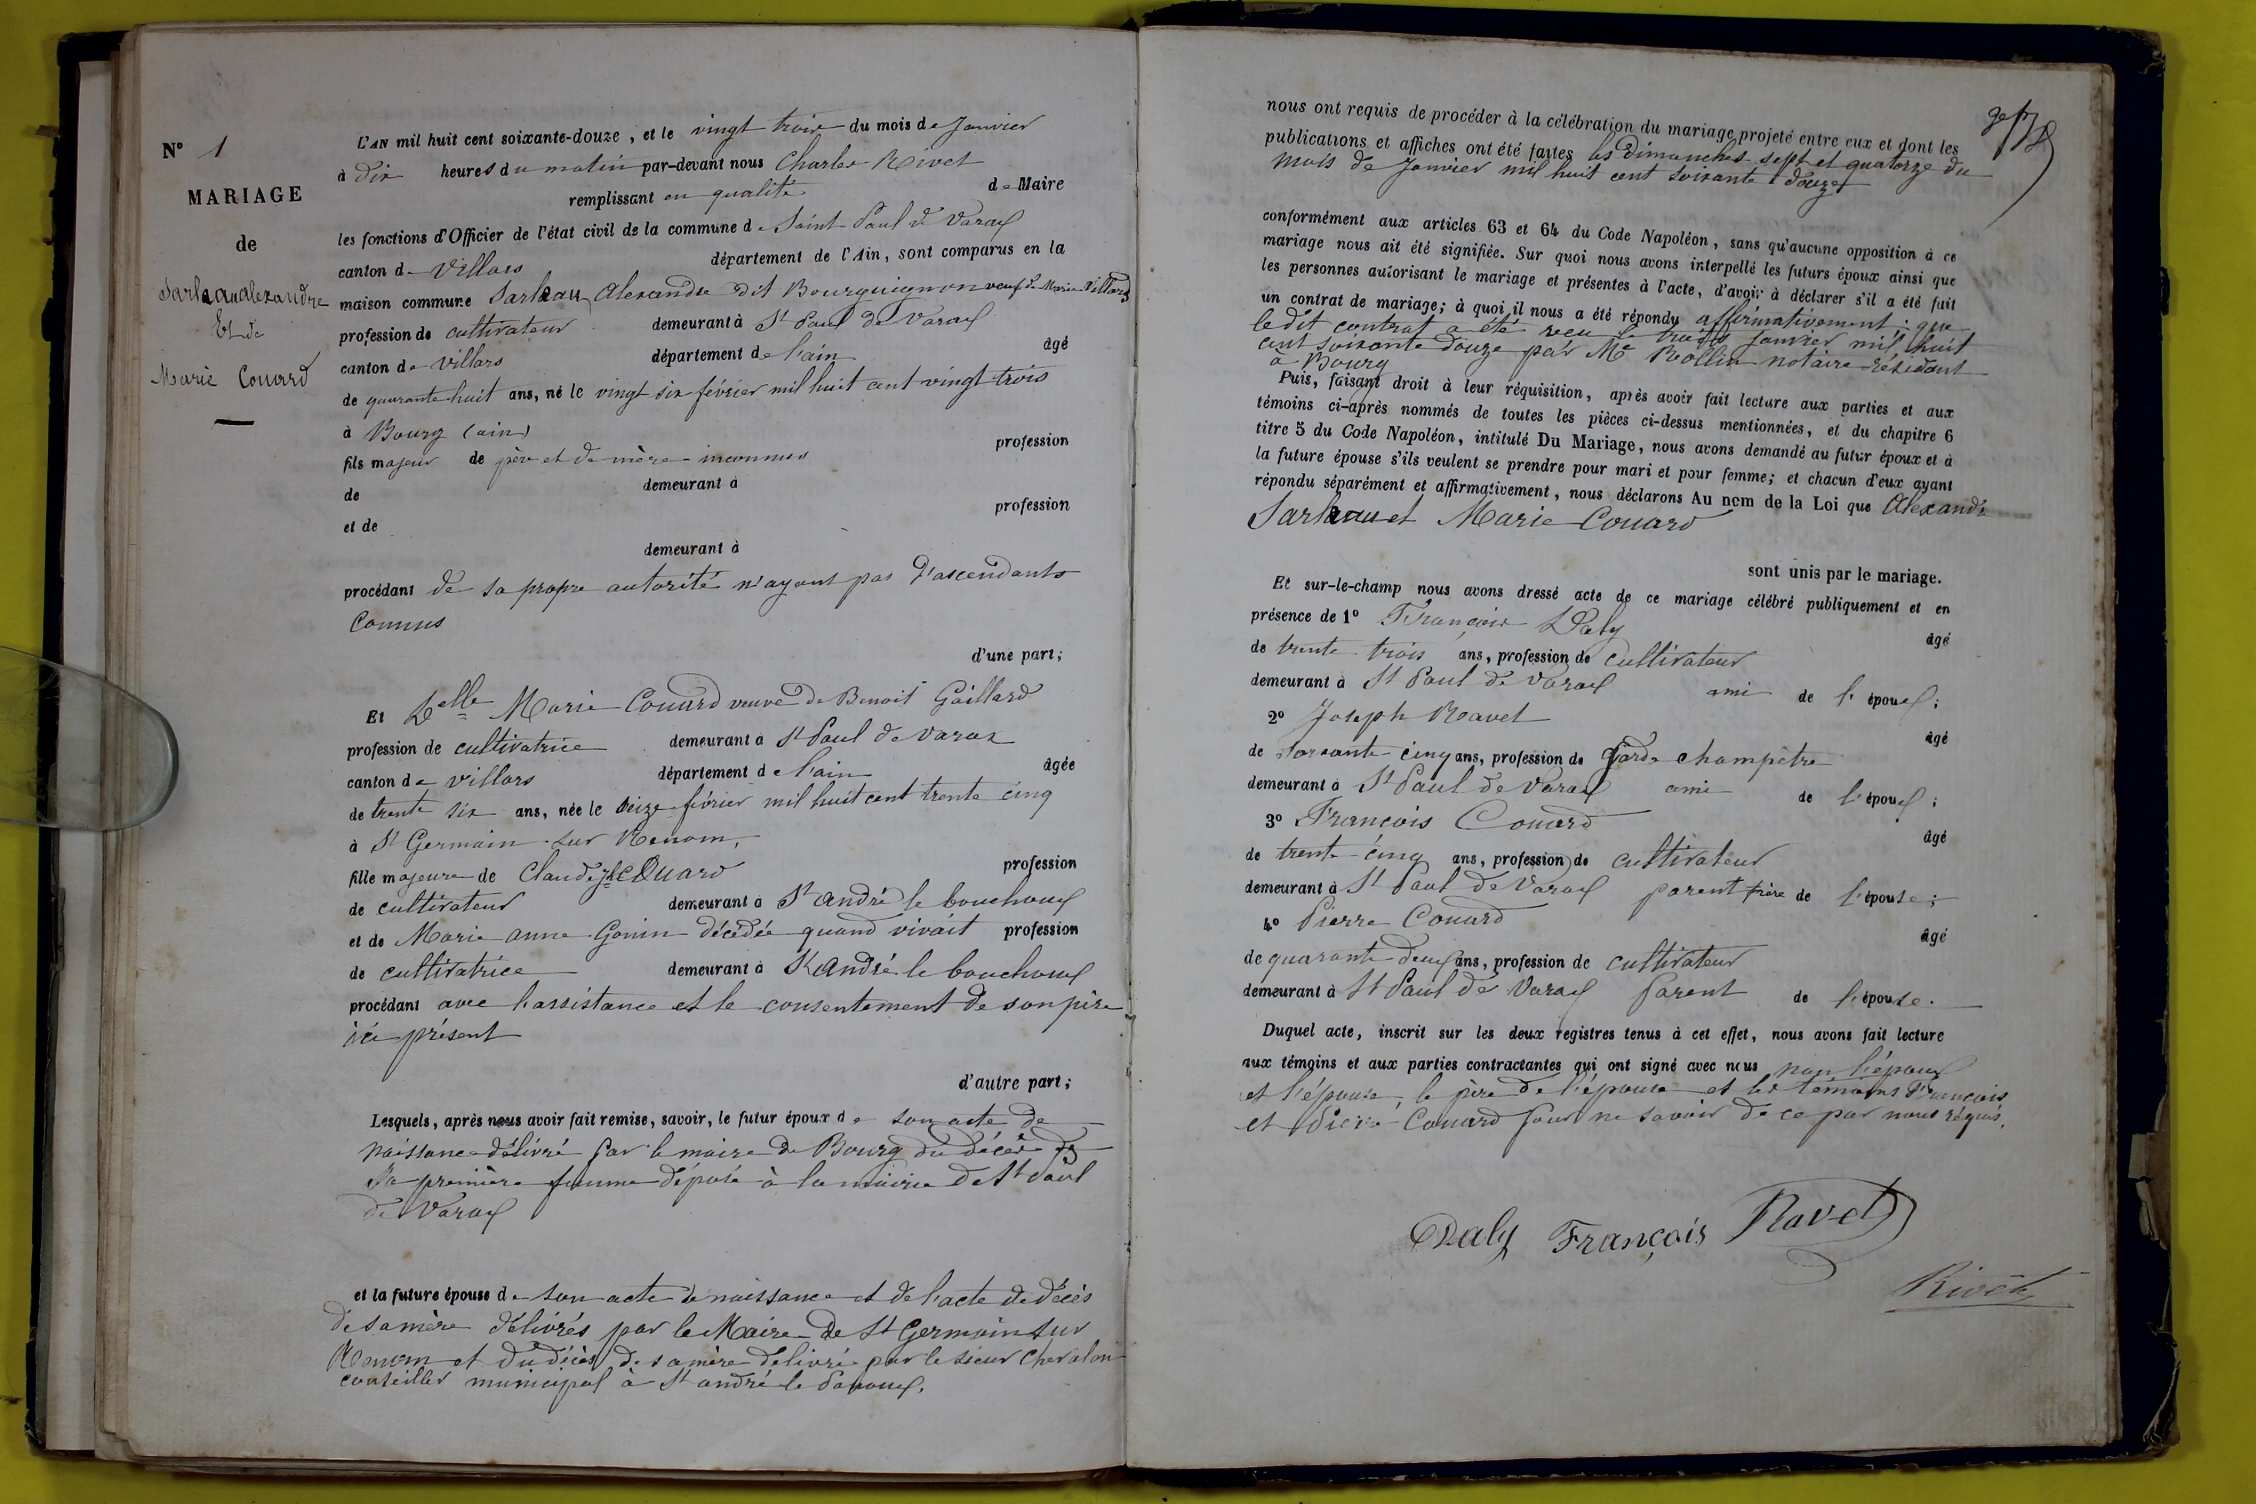 N° 1
MARIAGE
de
Et de
Marie Couard
L'AN mil huit cent soixante-douze, et le vingt trois du mois de Janvier
à dix heures du matin par-devant nous Charles Rivet
remplissant en qualité de Maire
les fonctions d'Officier de l'état civil de la commune de Saint Paul de Varax
canton de Villars département de l'Ain, sont comparus en la
maison commune Alexandre dit Bourguignon veuf de Marie Villard
profession de cultivateur demeurant à St Paul de Varax
canton de villars département de l'ain âgé
de quarante huit ans, né le vingt six février mil huit cent vingt trois
à Bourg (ain)
fils majeur de père et de mère inconnus profession
de demeurant à
et de profession
demeurant à
procédant de sa propre autorité n'ayant pas d'ascendants
connus
d'une part;
Et Delle Marie Couard veuve de Benoit Gaillard
profession de cultivatrice demeurant à St Paul de Varax
canton de villars département de l'ain âgée
de trente six ans, née le seize février mil huit cent trente cinq
à St Germain sur Renom,
fille majeure de Claude Couard profession
de cultivateur demeurant à St andré le bouchoux
et de Marie anne Gonin décédée quand vivait profession
de cultivatrice demeurant à St André le bouchoux
procédant avec l'assistance et le consentement de son père
ici présent
d'autre part;
Lesquels, après nous avoir fait remise, savoir, le futur époux de son acte de
naissance délivré par le maire de Bourg du décès de
Sa première femme déposé à la mairie de St Paul
de Varax
et la future épouse de son acte de naissance et de l'acte de décès
de sa mère délivrés par le Maire de St Germain sur
Renom et du décès de sa mère délivré par le sieur Chevalon
conseiller municipal à St andré le
nous ont requis de procéder à la célébration du mariage projeté entre eux et dont les
publications et affiches ont été faites les dimanches sept et quatorze du
mois de Janvier mil huit cent soixante douze
conformément aux articles 63 et 64 du Code Napoléon, sans qu'aucune opposition à ce
mariage nous ait été signifiée. Sur quoi nous avons interpellé les futurs époux ainsi que
les personnes autorisant le mariage et présentes à l'acte, d'avoir à déclarer s'il a été fait
un contrat de mariage; à quoi il nous a été répondu affirmativement; que
le dit contrat a été reçu le trois Janvier mil huit
cent soixante douze par Me Rollin notaire résidant
à Bourg
Puis, faisant droit à leur réquisition, après avoir fait lecture aux parties et aux
témoins ci-après nommés de toutes les pièces ci-dessus mentionnées, et du chapitre 6
titre 5 du Code Napoléon, intitulé Du Mariage, nous avons demandé au futur époux et à
la future épouse s'ils veulent se prendre pour mari et pour femme; et chacun d'eux ayant
répondu séparément et affirmativement, nous déclarons Au nom de la Loi que Alexandre
et Marie Couard
sont unis par le mariage.
Et sur-le-champ nous avons dressé acte de ce mariage célébré publiquement et en
présence de 1° François Daly
âgé
de trente trois ans, profession de cultivateur
demeurant à St Paul de Varax ami de l'époux;
2° Joseph Ravet
âgé
de soixante cinq ans, profession de garde champêtre
demeurant à St Paul de Varax ami de l'époux;
3° François Couard
âgé
de trente-cinq ans, profession de cultivateur
demeurant à St Paul de Varax parent frère de l'épouse;
4° Pierre Couard
âgé
de quarante deux ans, profession de cultivateur
demeurant à St Paul de Varax parent de l'épouse.
Duquel acte, inscrit sur les deux registres tenus à cet effet, nous avons fait lecture
aux témoins et aux parties contractantes qui ont signé avec nous non l'époux
et l'épouse, le père de l'épouse et les témoins François
et Pierre Couard pour ne savoir de ce par nous réquis.
Daly François Ravet
Rivet